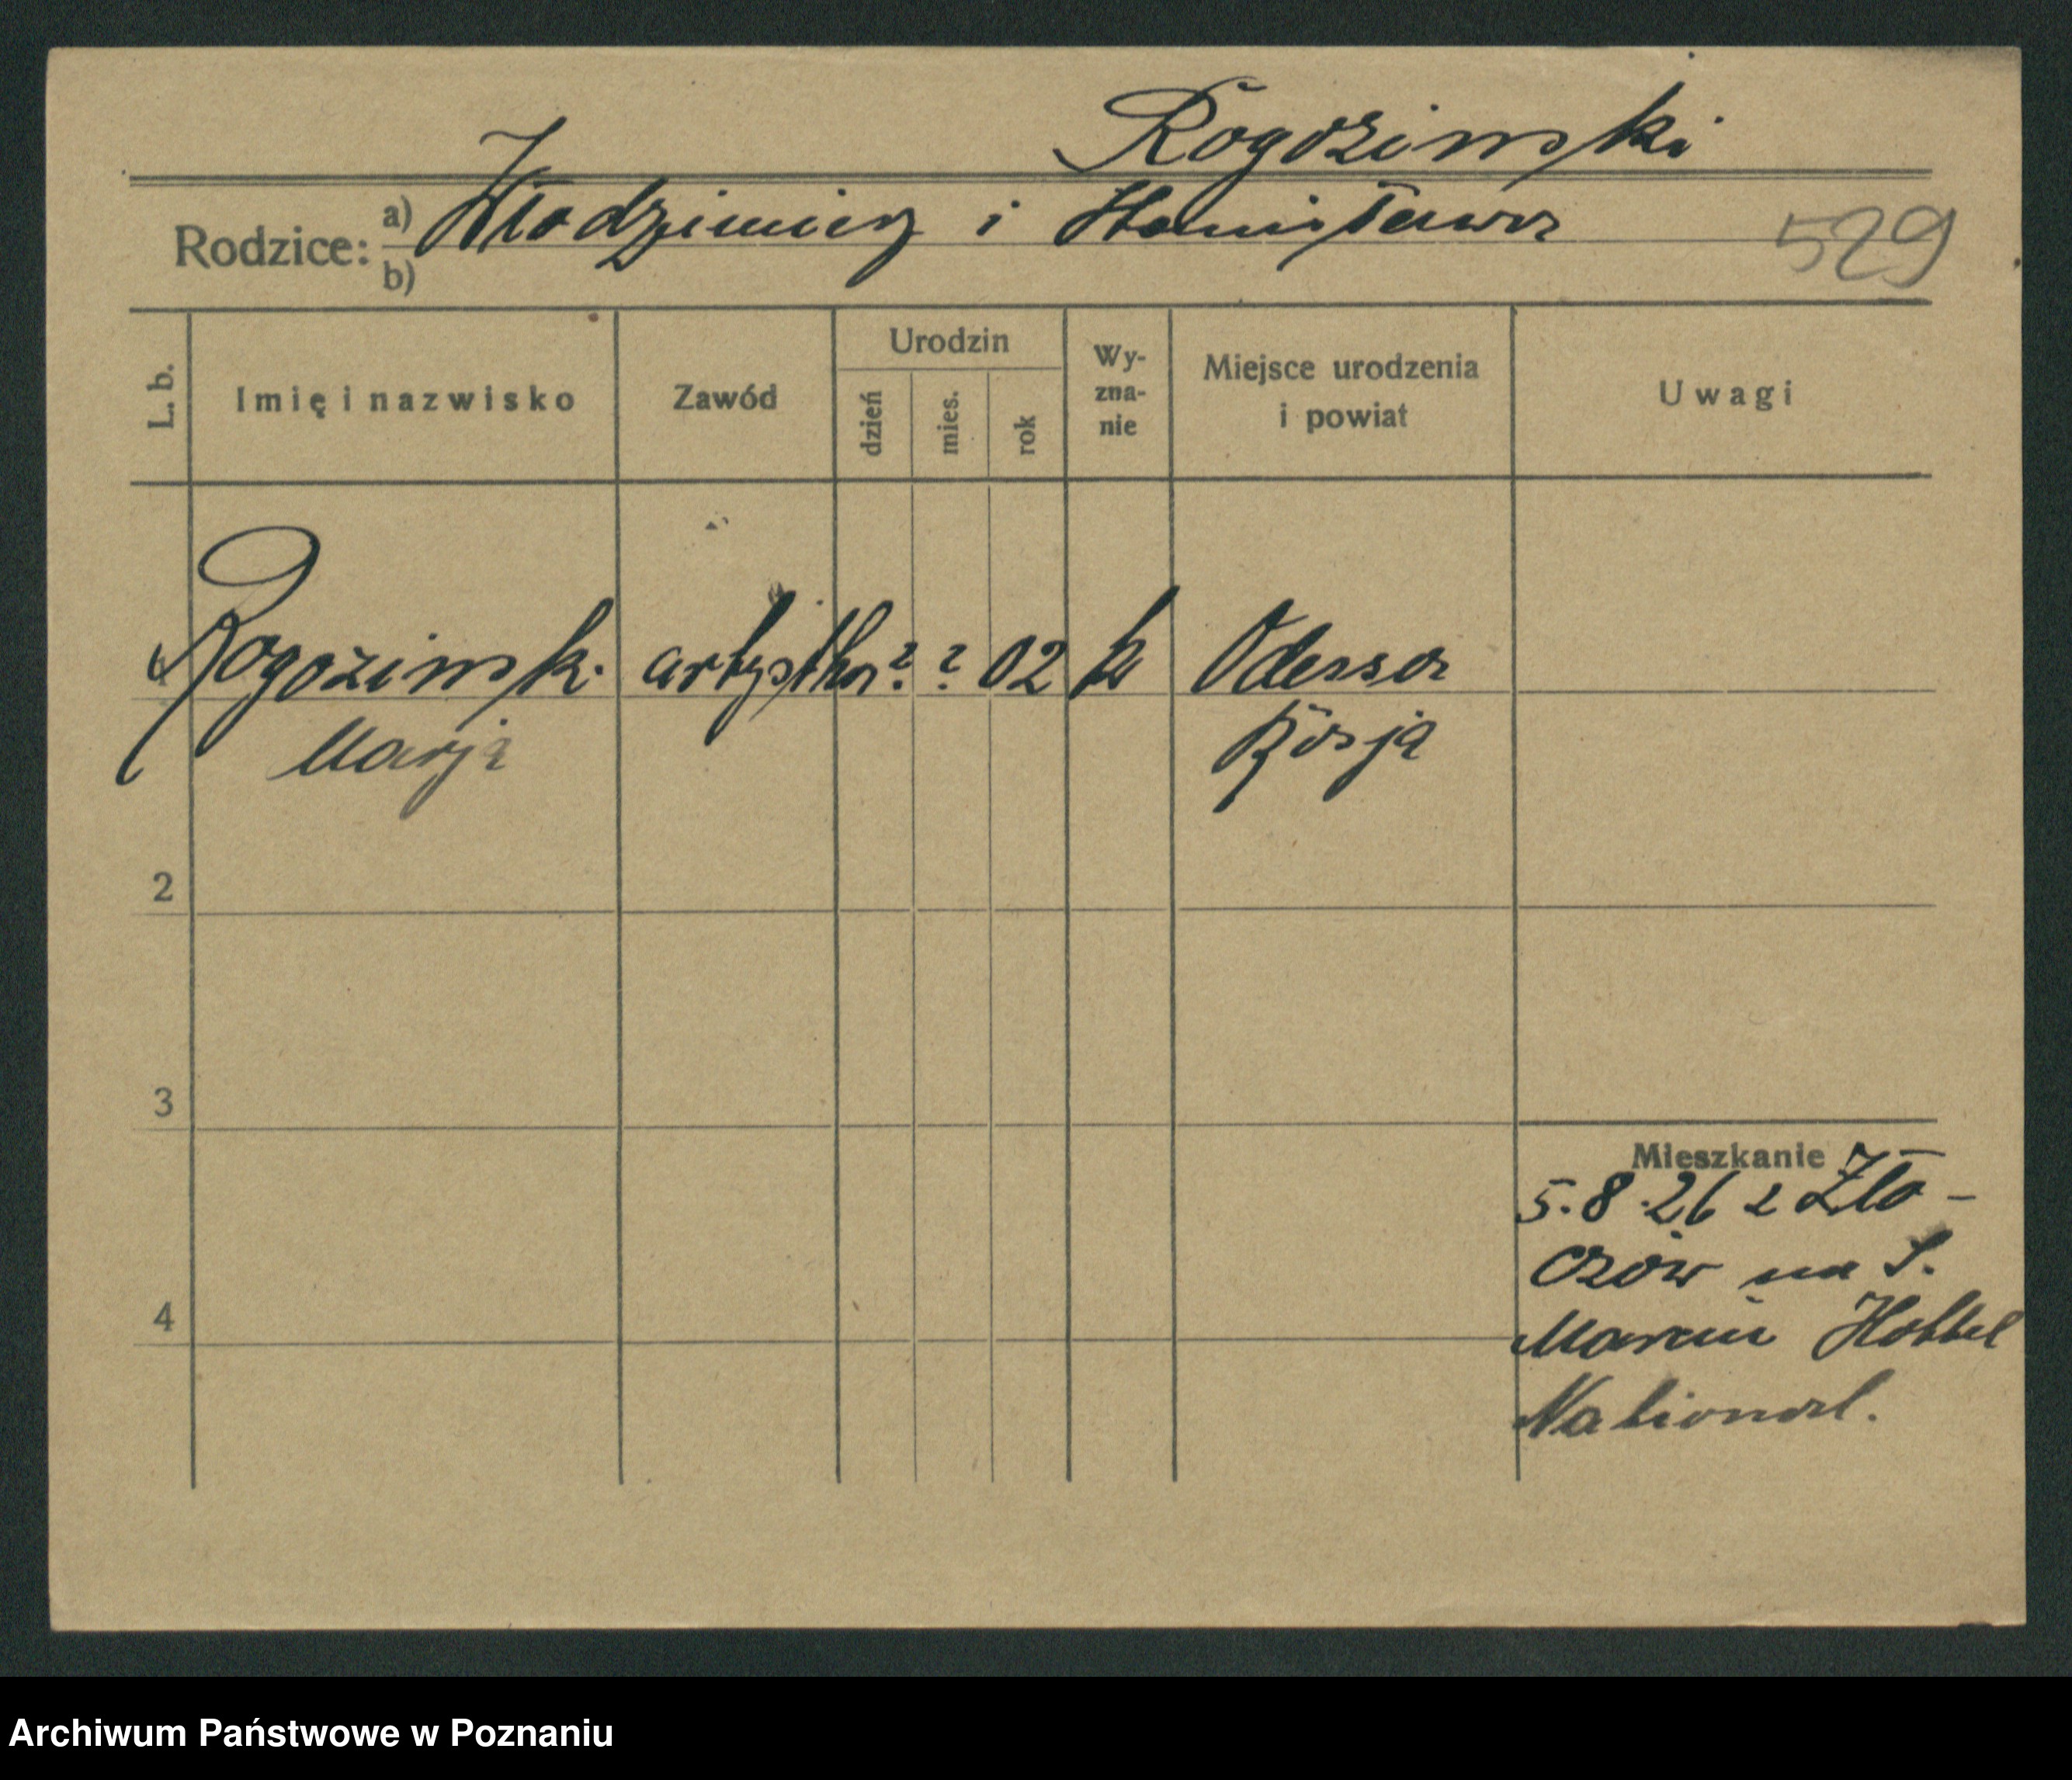 Rogozinski
Rodzice: a) Włodzimierz i Stanisława
b)
529
L. b.
Imię i nazwisko
Zawód
Urodzin
dzień
mies.
rok
Wy-
zna-
nie
Miejsce urodzenia
i powiat
Uwagi
Rogozinsk. artystka ? ? 02 k Odessa
Marja
Rosja
2
3
4
Mieszkanie
5.8.26 z Zło-
czów na S.
Marcin Hottel
National.
Archiwum Państwowe w Poznaniu